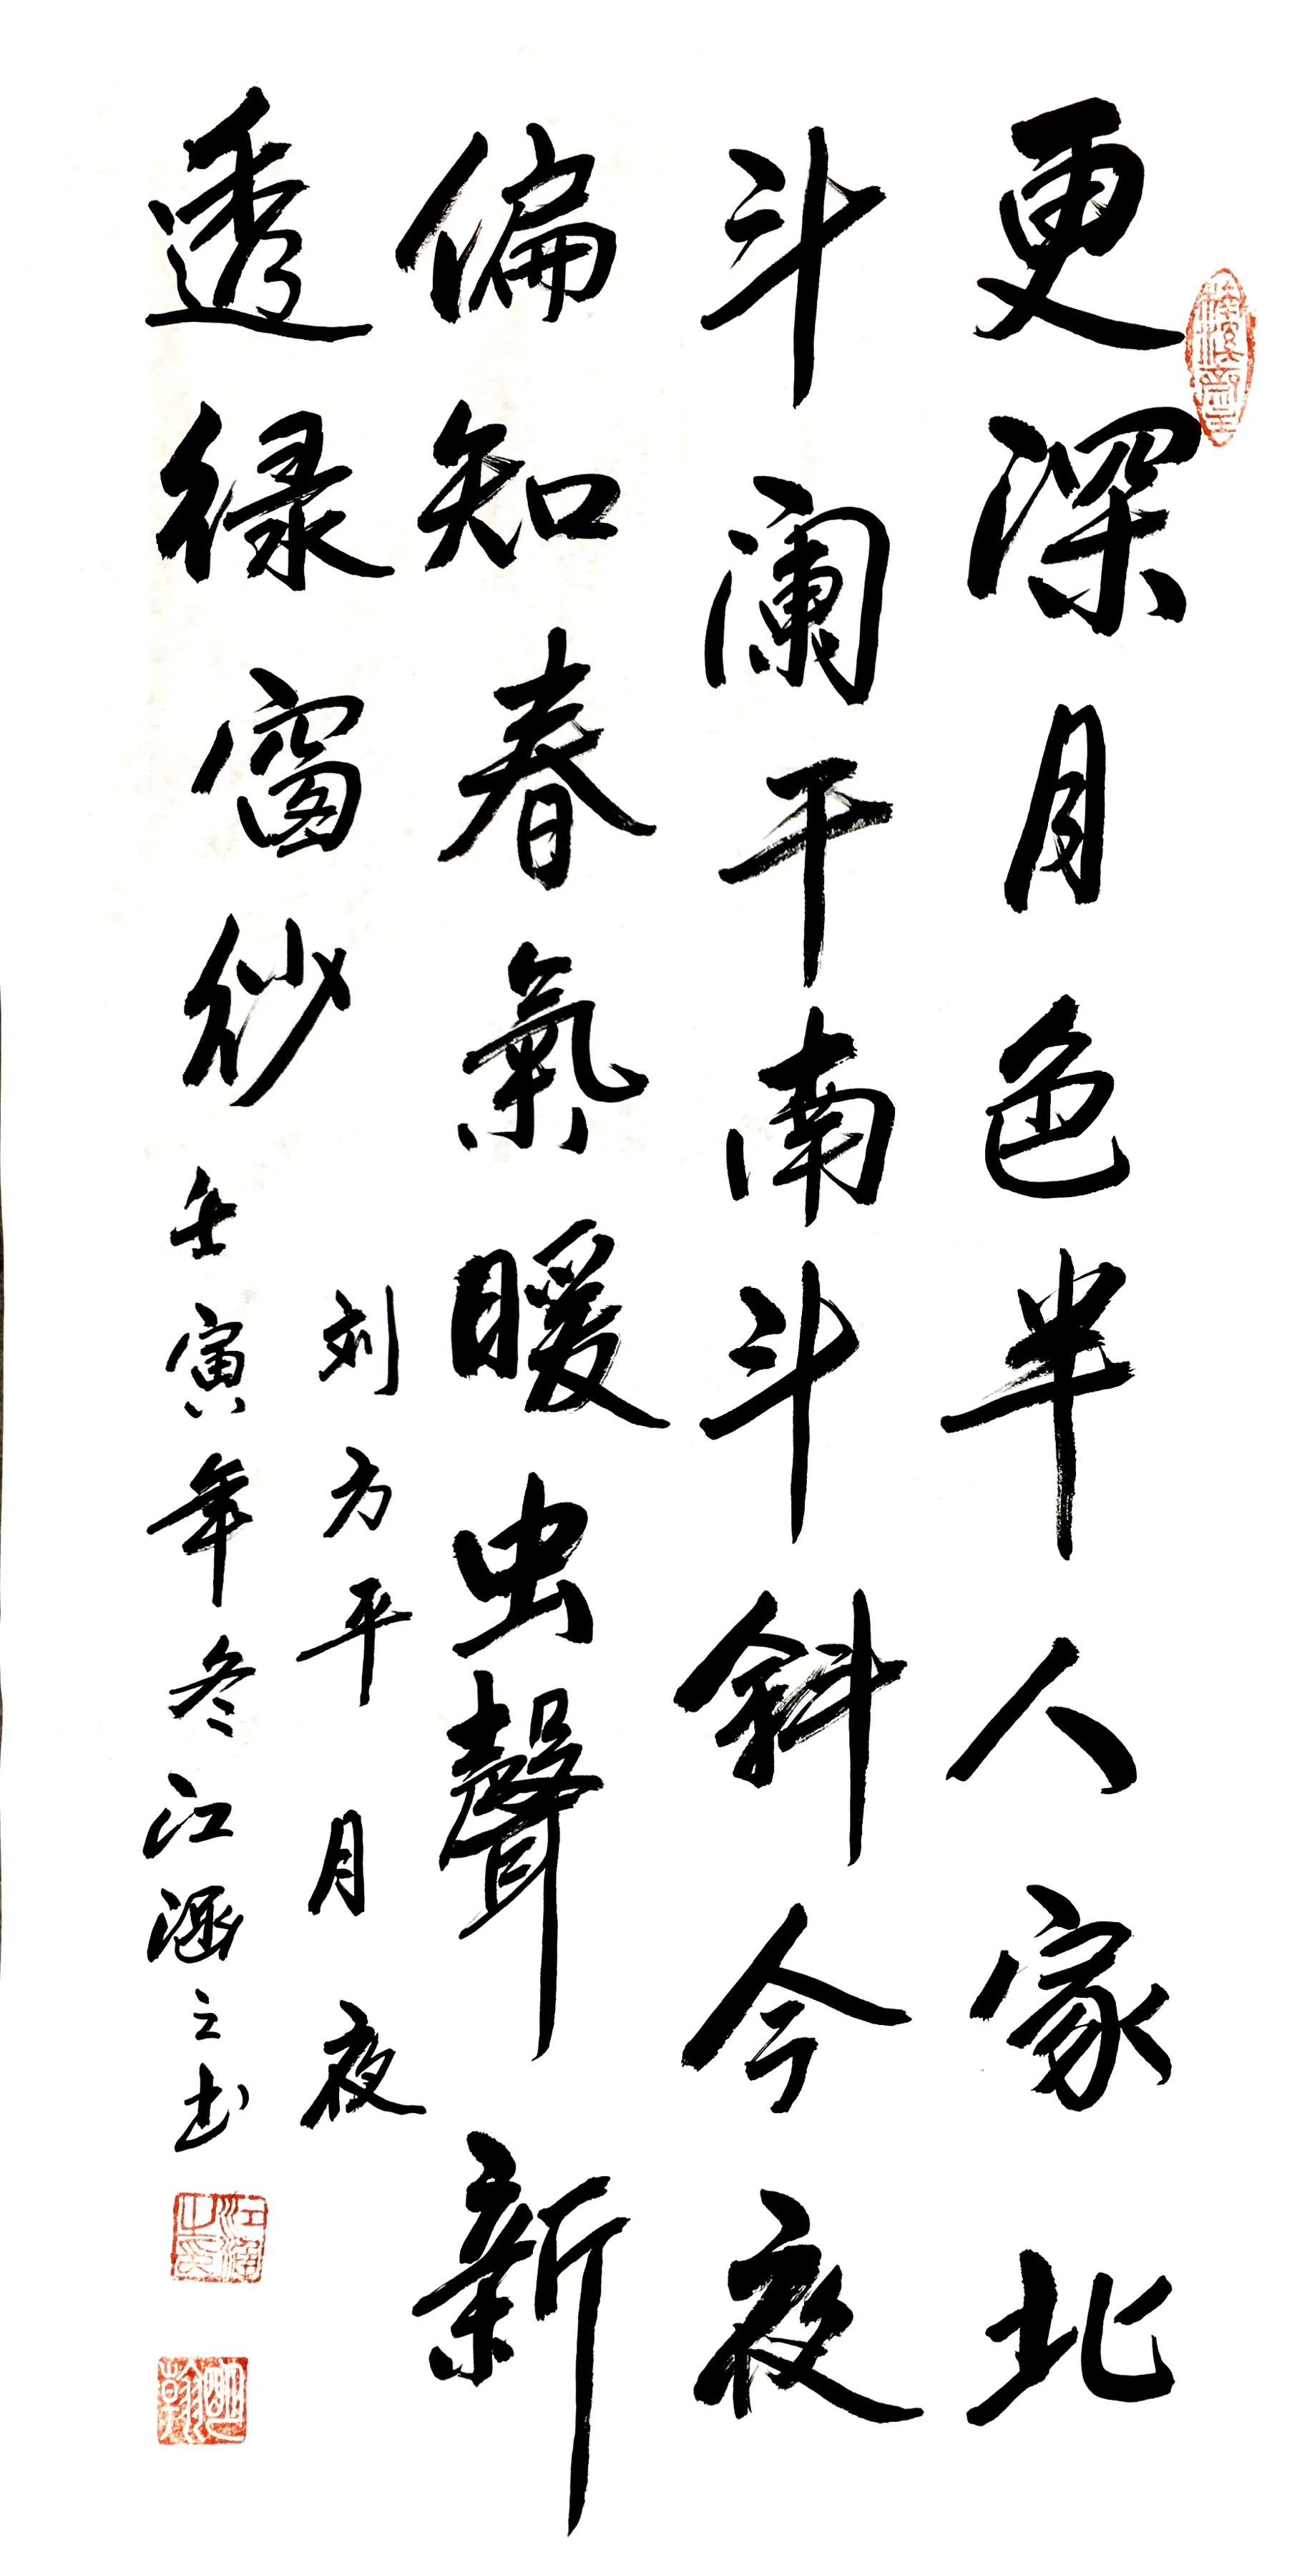 更深月色半人家北
斗澜干南斗斜今夜
偏知春氣暖虫聲新
透绿窗纱
刘方平月夜
壬寅年冬江涵之书
江涵之印